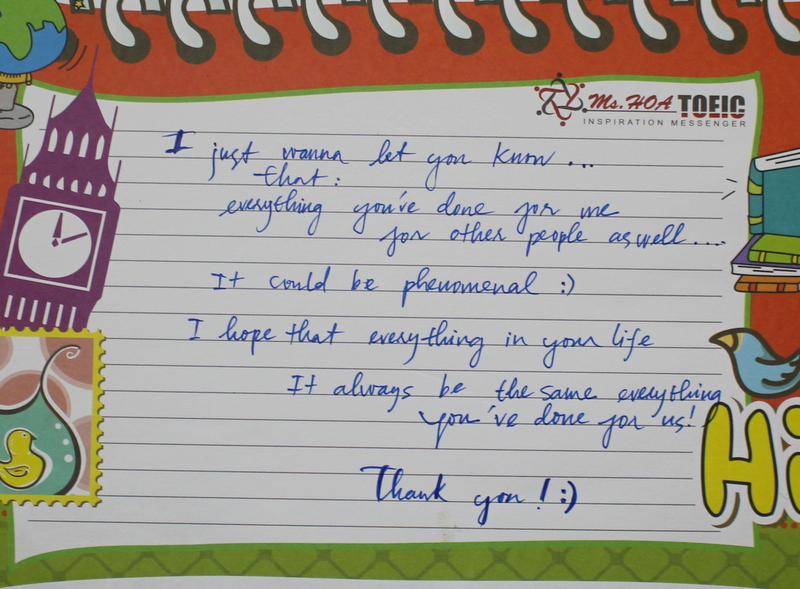 Ms. HOA TOEIC
INSPIRATION MESSENGER
I just wanna let you know...
that:
everything you've done for me
for other people aswell....
It could be phenomenal :)
I hope that everything in your life
It always be the same everything
you've done for us!
Thank you! :)
Hi